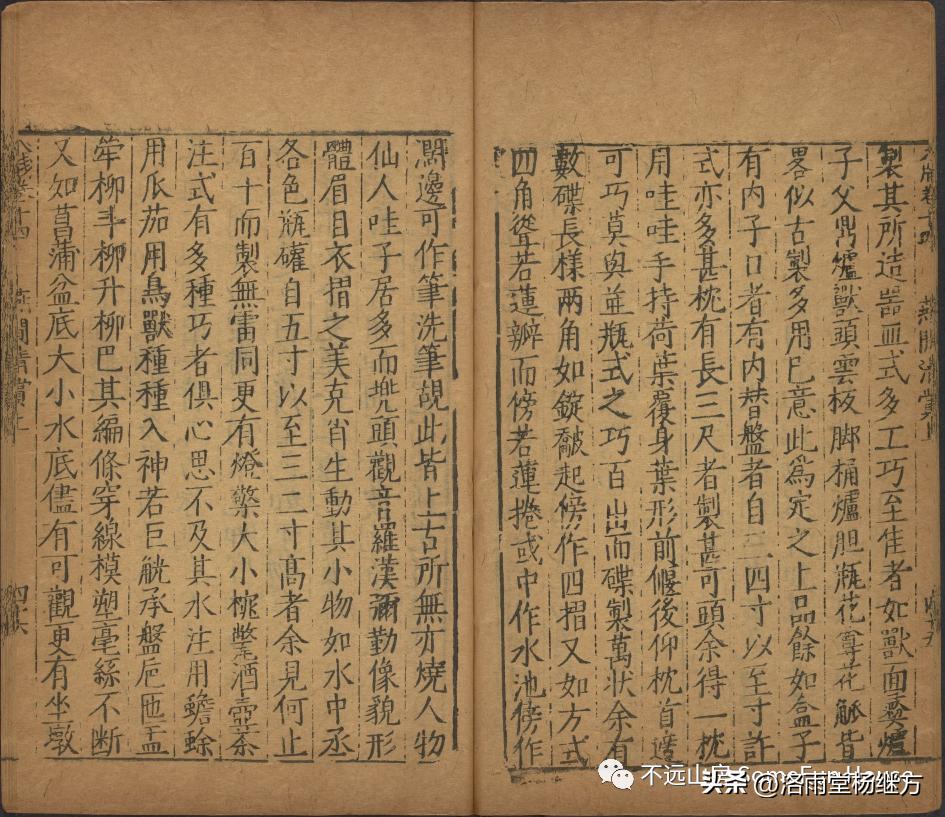 製其所造器皿式多工巧至佳者如獸面彝爐
子父鼎爐獸頭雲板脚桶爐胆瓶花尊花觚皆
畧似古製多用已意此爲定之上品餘如盒子
有内子口者有内替盤者自三四寸以至寸許
式亦多甚枕有長三尺者製甚可頭余得一枕
用哇哇手持荷葉覆身葉形前偃後仰枕首適
可巧莫與並瓶式之巧百出而碟製萬狀余有
數碟長樣兩角如錠翻起傍作四摺又如方式
四角聳若蓮瓣而傍若蓮捲或中作水池傍作
濶邊可作筆洗筆覘此皆上古所無亦燒人物
仙人哇子居多而兠頭觀音羅漢彌勤像貌形
體眉目衣摺之美克肖生動其小物如水中丞
各色瓶礶自五寸以至三二寸高者余見何止
百十而製無雷同更有燈檠大小椀甃酒壺茶
注式有多種巧者俱心思不及其水注用蟾蜍
用瓜茄用鳥獸種種入神若巨觥承盤巵匜盂
斝柳斗柳升柳巴其編條穿線模塑毫絲不断
又如菖蒲盆底大小水底儘有可觀更有坐墩
燕閒清賞上
不远山房SomeFunHouse
头条 @洛雨堂杨继方